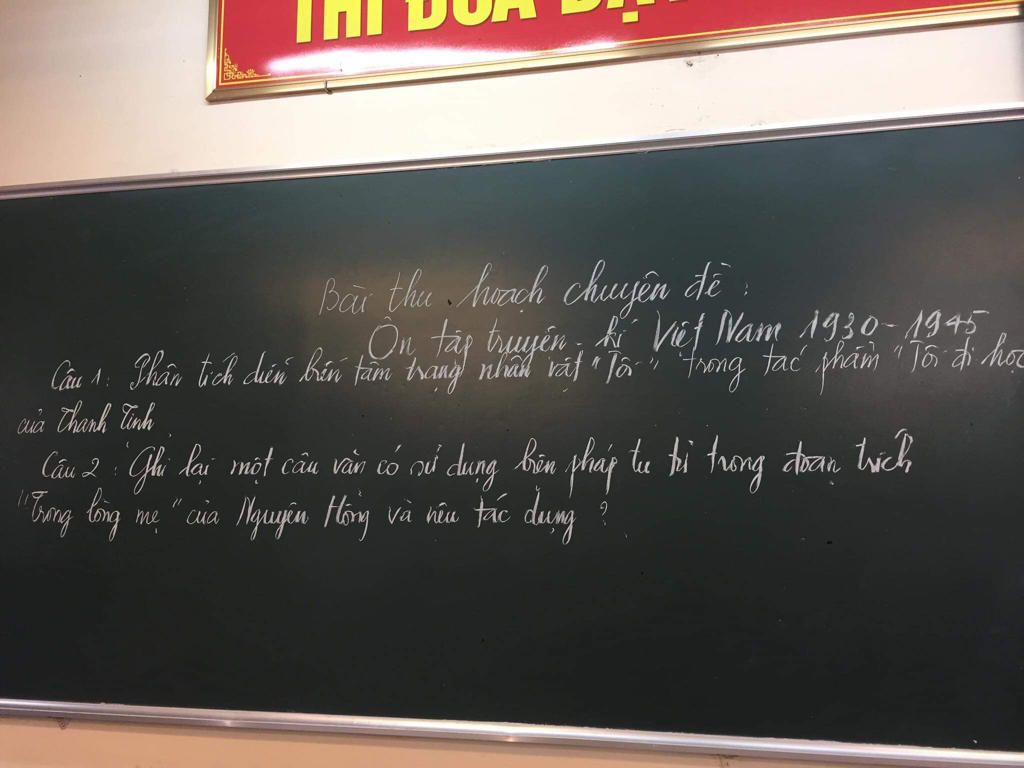 THI ĐUA DẠ
Bài thu hoạch chuyên đề :
Ôn tập truyện - kí Việt Nam 1930 - 1945
Câu 1 : Phân tích diễn biến tâm trạng nhân vật "Tôi" trong tác phẩm "Tôi đi học
của Thanh Tịnh
Câu 2 : Ghi lại một câu văn có sử dụng biện pháp tu từ trong đoạn trích
"Trong lòng mẹ" của Nguyên Hồng và nêu tác dụng ?